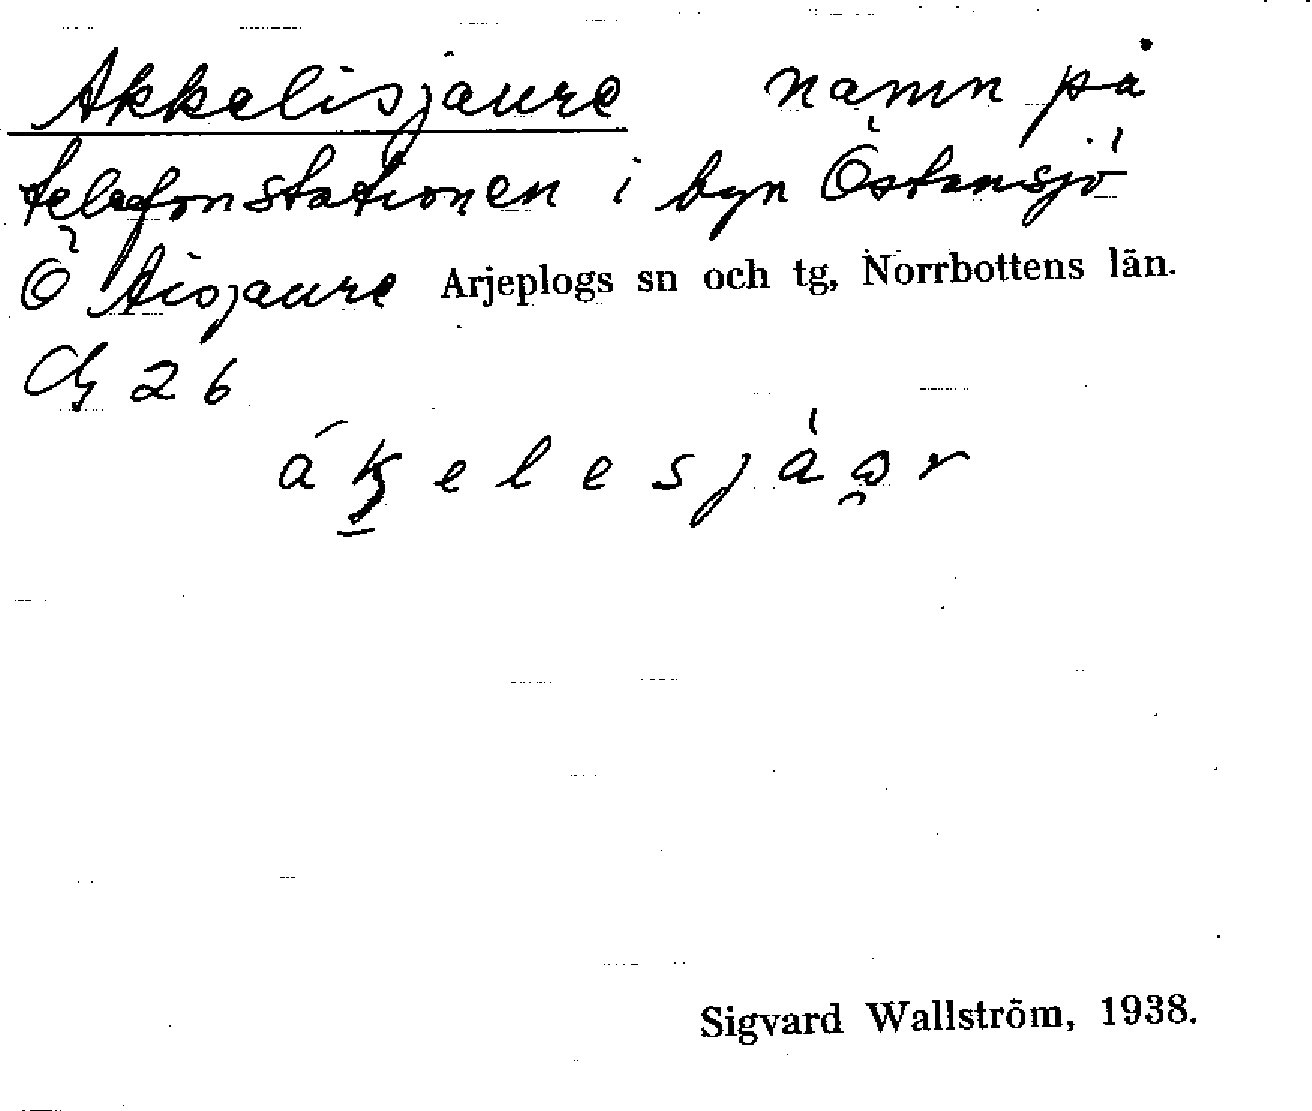 Akkelisjaure namn på
telefonstationen i byn Östansjö
Ö Aisjaure Arjeplogs sn och tg, Norrbottens län.
26
Sigvard Wallström, 1938.